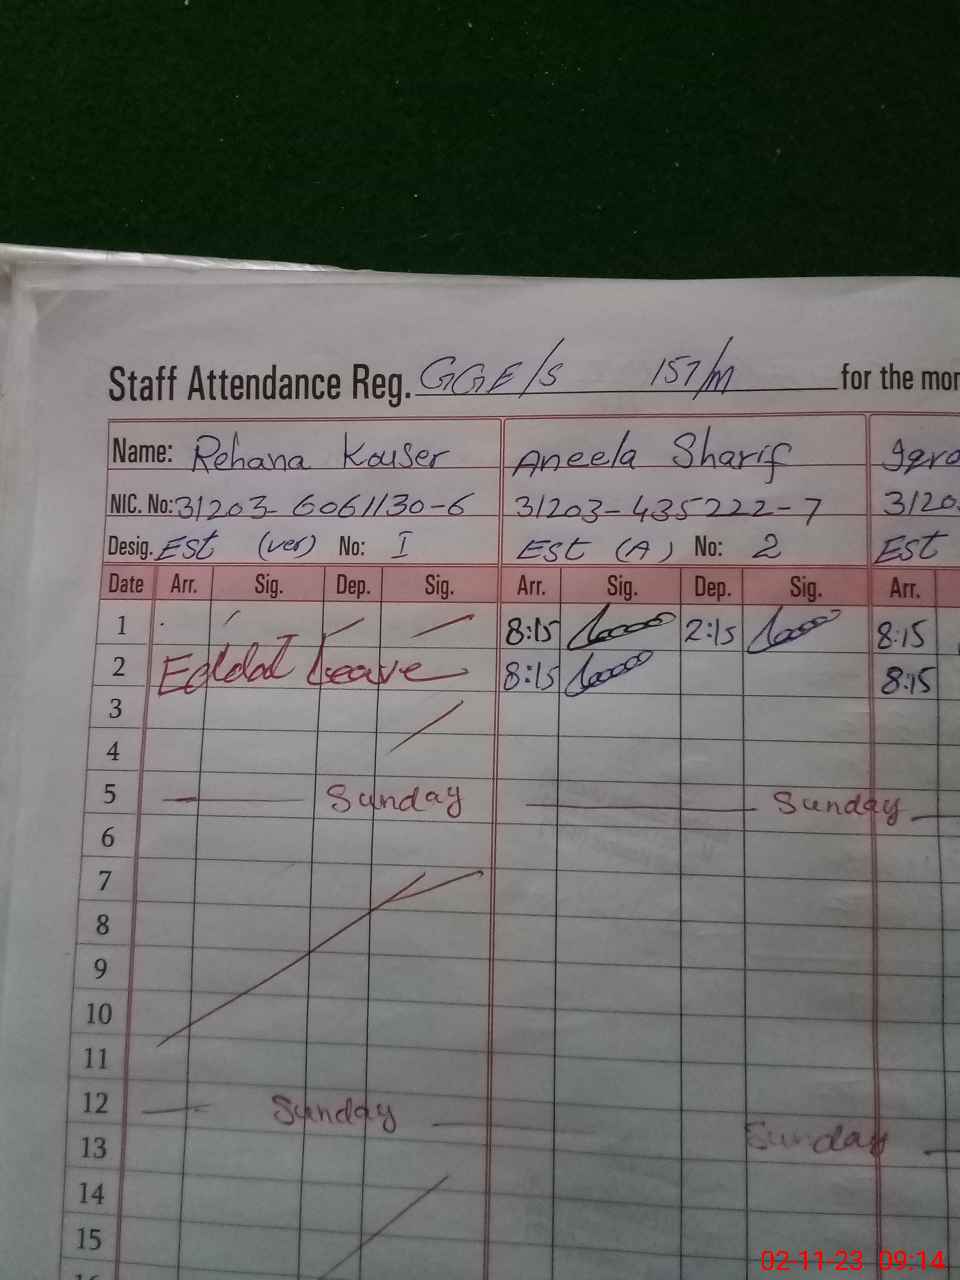 Staff Attendance Reg. GGE/S 157/M for the mon
Name: Rehana Kouser Aneela Sharif Iqra
NIC. No: 31203-6061130-6 31203-435222-7 3120
Desig. EST (ver) No: I EST (A) No: 2 EST
Date Arr. Sig. Dep. Sig. Arr. Sig. Dep. Sig. Arr.
1 8:15 2:15 8:15
2 Leave 8:15 8:15
3
4
5 Sunday Sunday
6
7
8
9
10
11
12 Sunday
13 Sunday
14
15
16
02-11-23 09:14